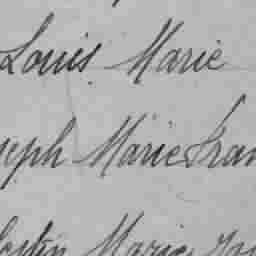 Louis Marie
seph Marie Fran
Marie